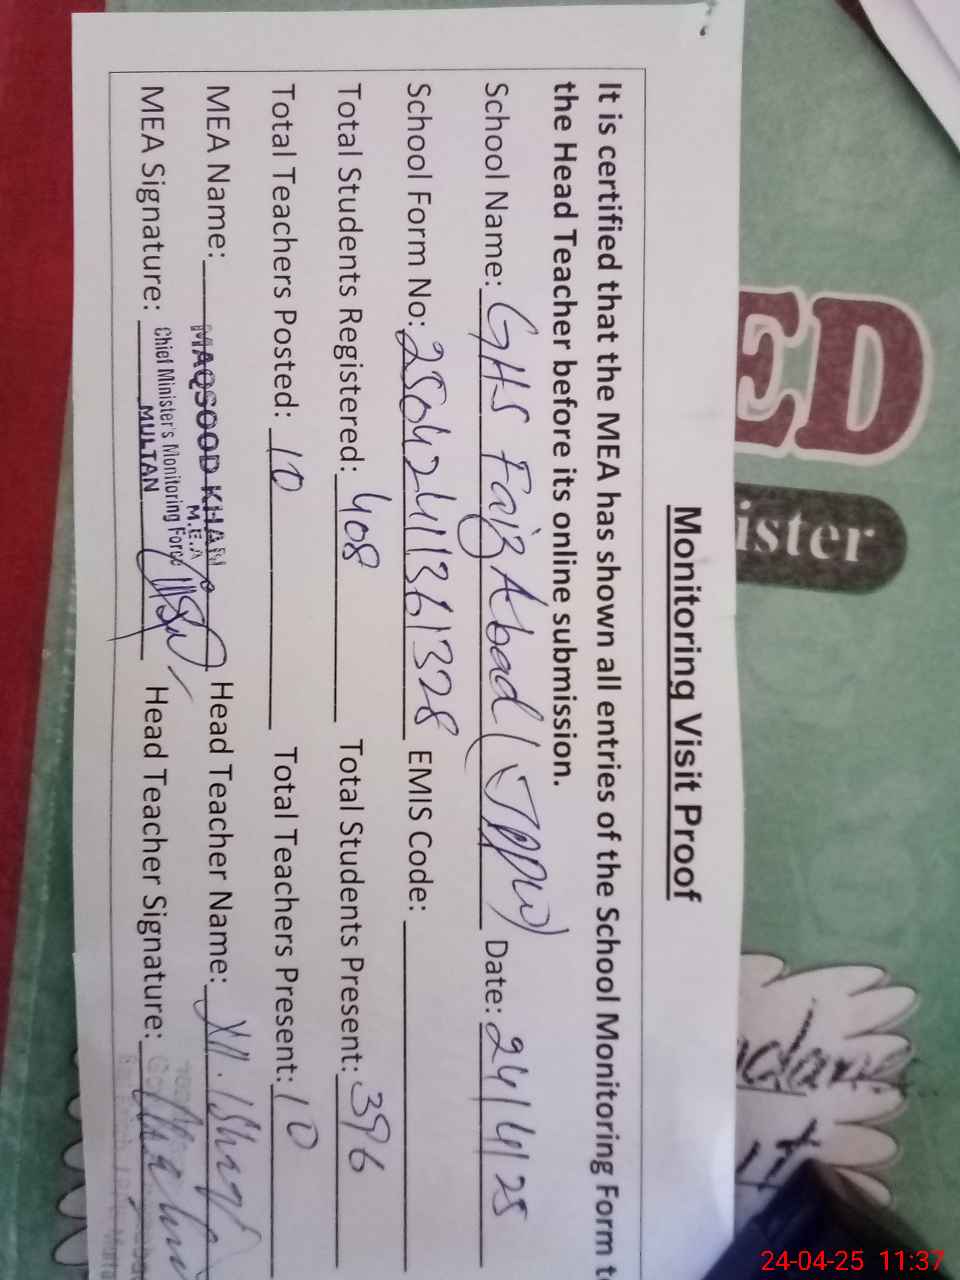 Monitoring Visit Proof
It is certified that the MEA has shown all entries of the School Monitoring Form t
the Head Teacher before its online submission.
School Name: GHS Faiz Abad ( Date: 24/4/25
School Form No: 2504241361328 EMIS Code:
Total Students Registered: 408 Total Students Present: 396
Total Teachers Posted: 10 Total Teachers Present: 10
MEA Name: MAQSOOD KHAN Head Teacher Name: M. Ishaq
M.E.A
Chief Minister's Monitoring Force
MULTAN
MEA Signature: Head Teacher Signature:
ED
ister
24-04-25 11:37